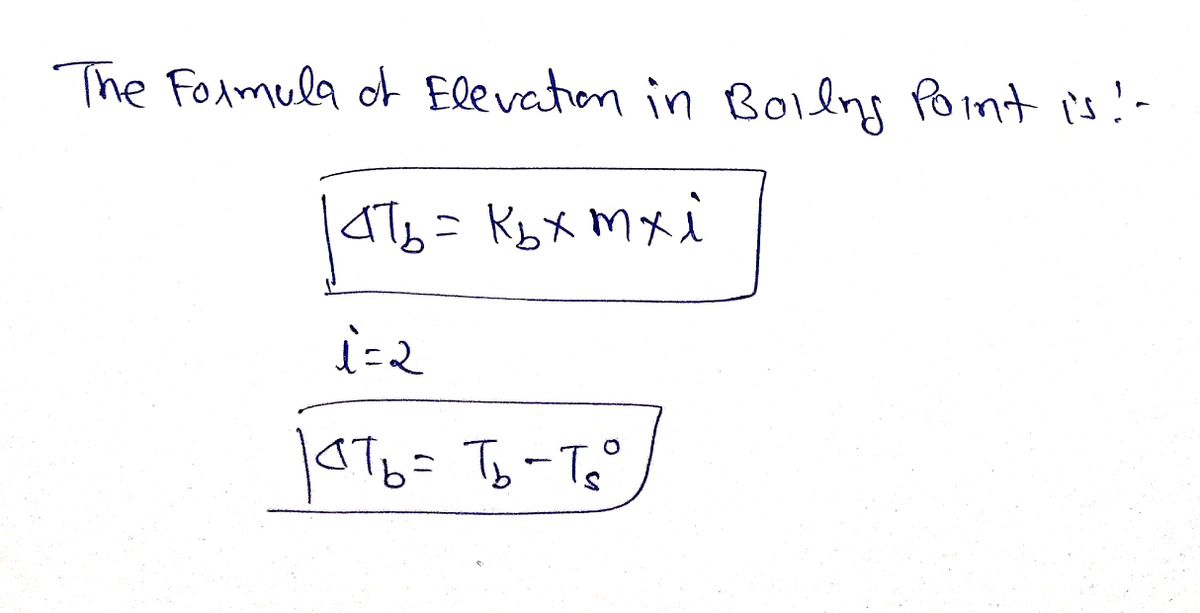 The Formula of Elevation in Boilng Point is:-
ΔTb = Kb x m x i
i=2
ΔTb = Tb - Ts°